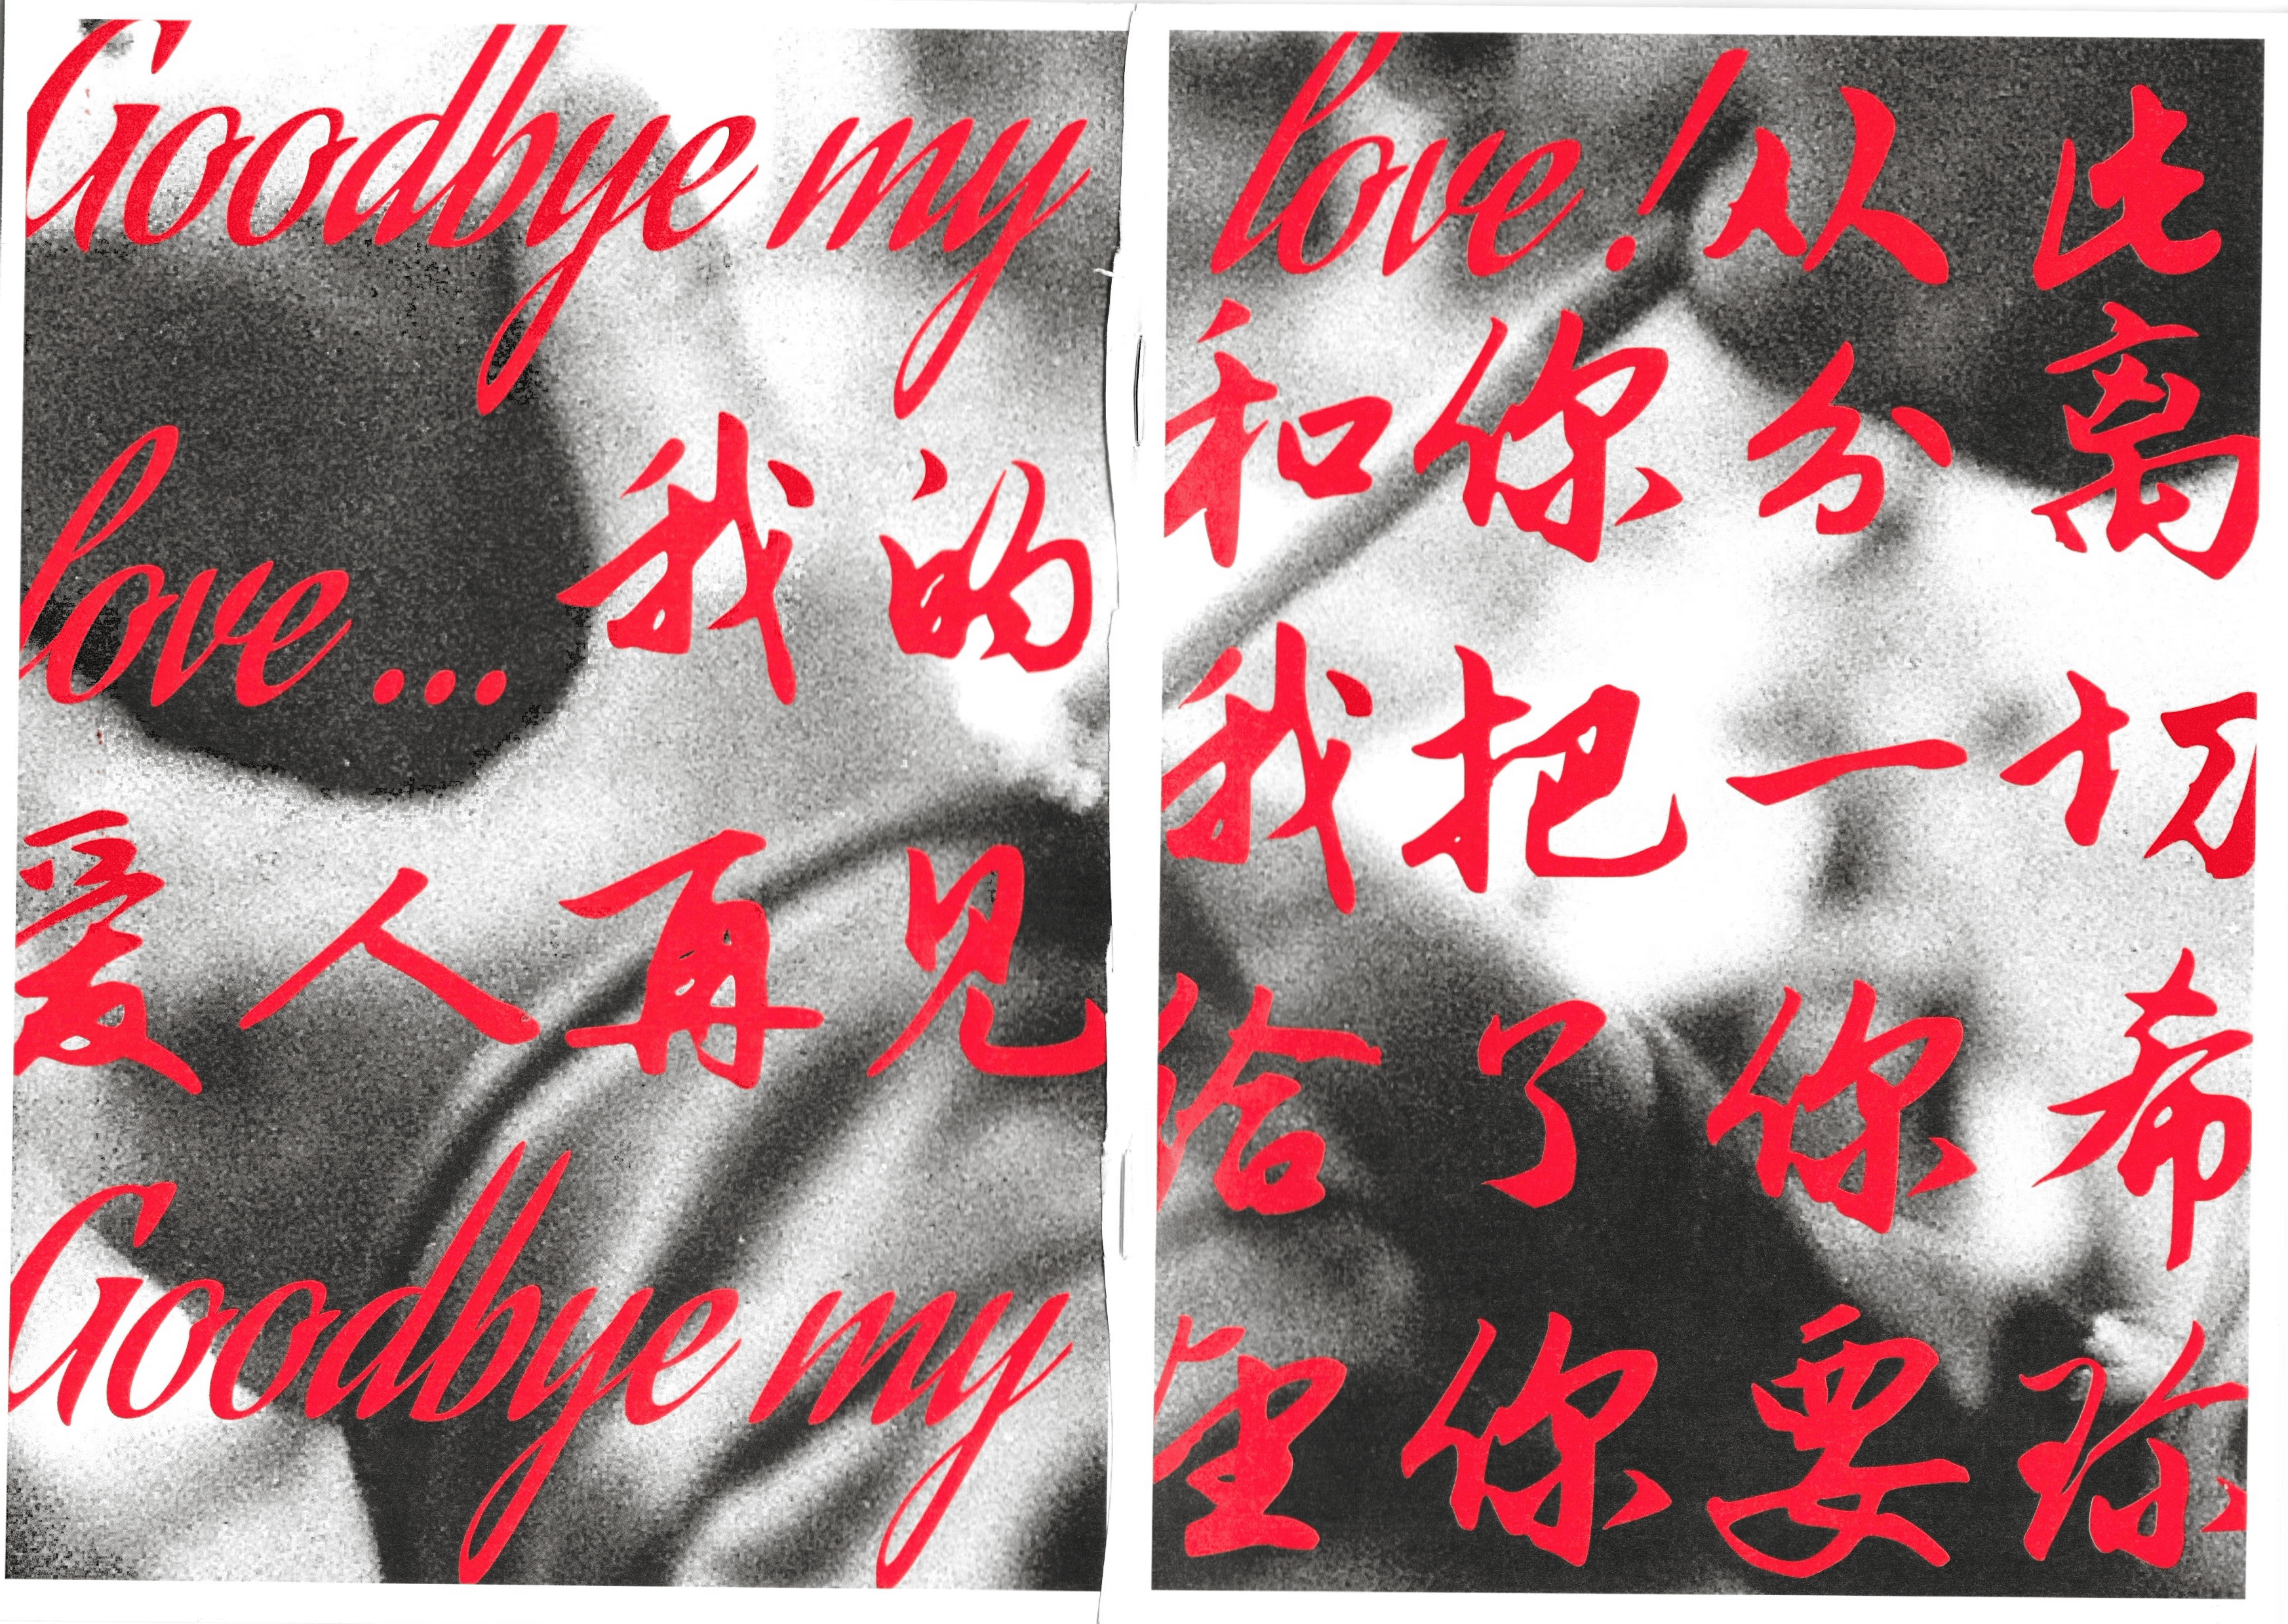 Goodbye my
love...我的
爱人再见
Goodbye my
love!从此
和你分离
我把一切
给了你希
望你要珍